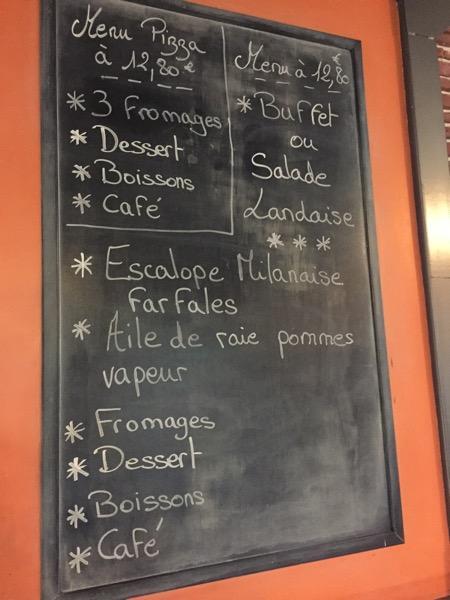 Menu Pizza
à 12,80 €
* 3 Fromages
* Dessert
* Boissons
* Café
Menu à 12,80 €
* Buffet
ou
Salade
Landaise
* * *
* Escalope Milanaise
farfales
* Aile de raie pommes
vapeur
* Fromages
* Dessert
* Boissons
* Café